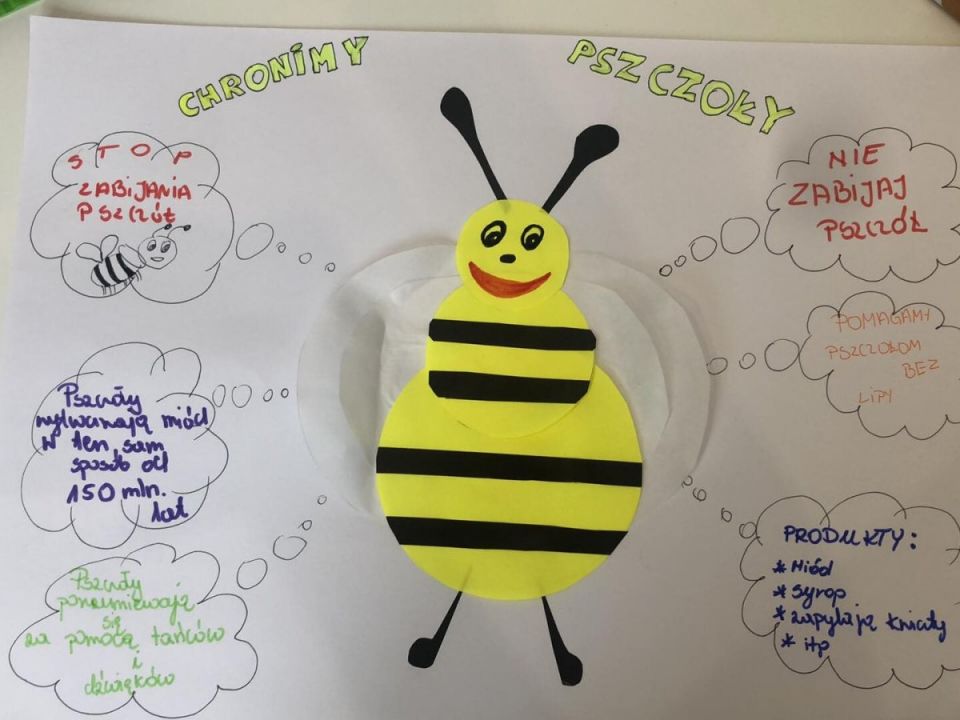 CHRONIMY PSZCZOŁY
STOP
ZABIJANIA
PSZCZÓŁ
Pszczoły
wytwarzają miód
w ten sam
sposób od
150 mln.
lat
Pszczoły
porozumiewają
się
za pomocą tańców
i
dźwięków
NIE
ZABIJAJ
PSZCZÓŁ
POMAGAMY
PSZCZOŁOM
BEZ
LIPY
PRODUKTY:
* Miód
* syrop
* zapylają kwiaty
* itp